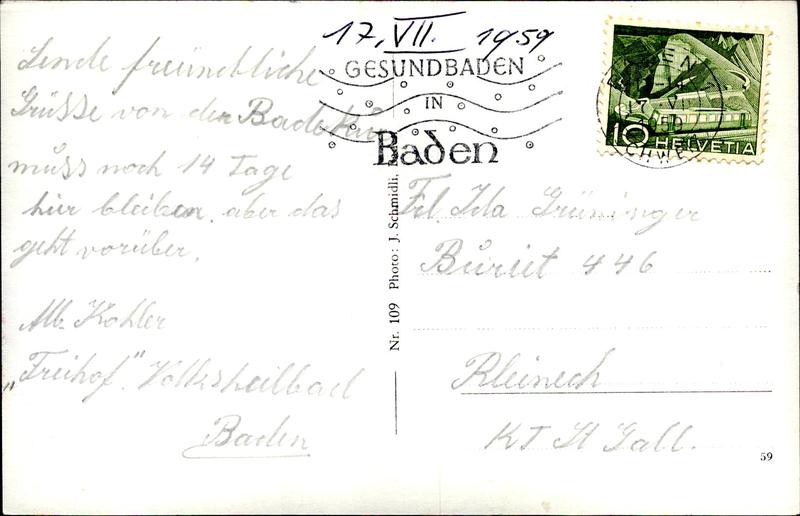 17. VII. 1959
GESUNDBADEN
IN
Baden
10 HELVETIA
Sende freundliche
Grüsse von der Badekur
muss noch 14 Tage
hier bleiben, aber das
geht vorüber.
Alb. Kohler
„Freihof“ Volksheilbad
Baden
Nr. 109 Photo: J. Schmidli,
Frl. Ida Grüninger
Buriet 446
Rheineck
KT St Gall.
59